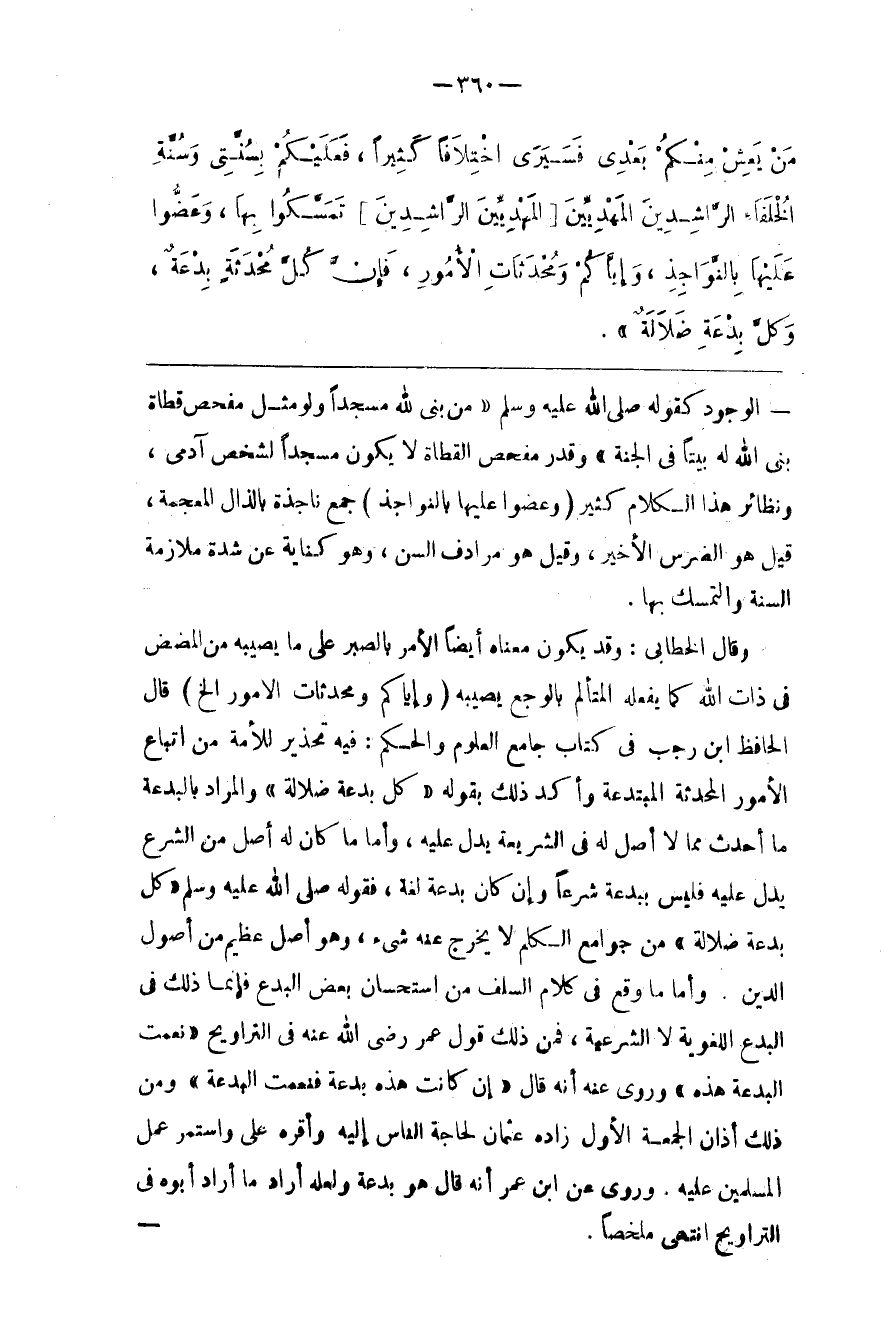 —٣٦٠—
مَنْ يَعِشْ مِنْـكُمْ بَعْدِى فَسَـيَرَى اخْتِلَافَاً كَثِيراً ، فَعَلَيْـكُمْ بِسُنَّـتِى وَسُنَّةِ
الْخُلَفَاءِ الرَّاشِـدِينَ المَهْدِيِّينَ [ المَهْدِيِّينَ الرَّاشِـدِينَ ] تَمَسَّـكُوا بِهَا ، وَعَضُّوا
عَلَيْهَا بِالنَّوَاجِذِ ، وَإِيَّاكُمْ وَمُحْدَثَاتِ الْأُمُورِ ، فَإِنَّ كُلَّ مُحْدَثَةٍ بِدْعَةٌ ،
وَكلَّ بِدْعَةِ ضَلَالَةٌ » .
— الوجود كقوله صلى الله عليه وسلم « من بنى لله مسجداً ولو مثـل مفحص قطاة
بنى الله له بيتاً فى الجنة » وقدر مفحص القطاة لا يكون مسجداً لشخص آدمى ،
ونظائر هذا الـكلام كثير ( وعضوا عليها بالنواجذ ) جمع ناجذة بالذال المعجمة ،
قيل هو الضرس الأخير ، وقيل هو مرادف السن ، وهو كـناية عن شدة ملازمة
السنة والتمسك بها .
وقال الخطابى : وقد يكون معناه أيضاً الأمر بالصبر على ما يصيبه من المضض
فى ذات الله كما يفعله المتألم بالوجع يصيبه ( وإياكم ومحدثات الامور الخ ) قال
الحافظ ابن رجب فى كتاب جامع العلوم والحـكم : فيه تحذير للأمة من اتباع
الأمور المحدثة المبتدعة وأكـد ذلك بقوله « كل بدعة ضلالة » والمراد بالبدعة
ما أحدث مما لا أصل له فى الشريعة يدل عليه ، وأما ما كان له أصل من الشرع
يدل عليه فليس ببدعة شرعاً وإن كان بدعة لغة ، فقوله صلى الله عليه وسلم « كل
بدعة ضلالة » من جوامع الـكلم لا يخرج عنه شىء ، وهو أصل عظيم من أصول
الدين . وأما ما وقع فى كلام السلف من استحسان بعض البدع فإنمـا ذلك فى
البدع اللغوية لا الشرعية ، فمن ذلك قول عمر رضى الله عنه فى التراويح « نعمت
البدعة هذه » وروى عنه أنه قال « إن كانت هذه بدعة فنعمت البدعة » ومن
ذلك أذان الجمعـة الأول زاده عثمان لحاجة الناس إليه وأقره على واستمر عمل
المسلمين عليه . وروى عن ابن عمر أنه قال هو بدعة ولعله أراد ما أراد أبوه فى
التراويح انتهى ملخصاً . —